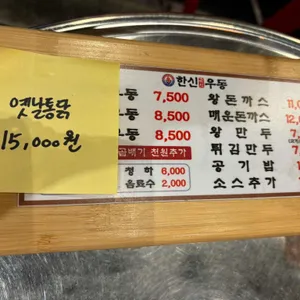 옛날통닭
15,000원
한신 우동
동 7,500
동 8,500
동 8,500
곱빼기 천원추가
청하 6,000
음료수 2,000
왕돈까스 11,0
매운돈까스 12,
왕만두 7
튀김만두 7
공기밥
소스추가